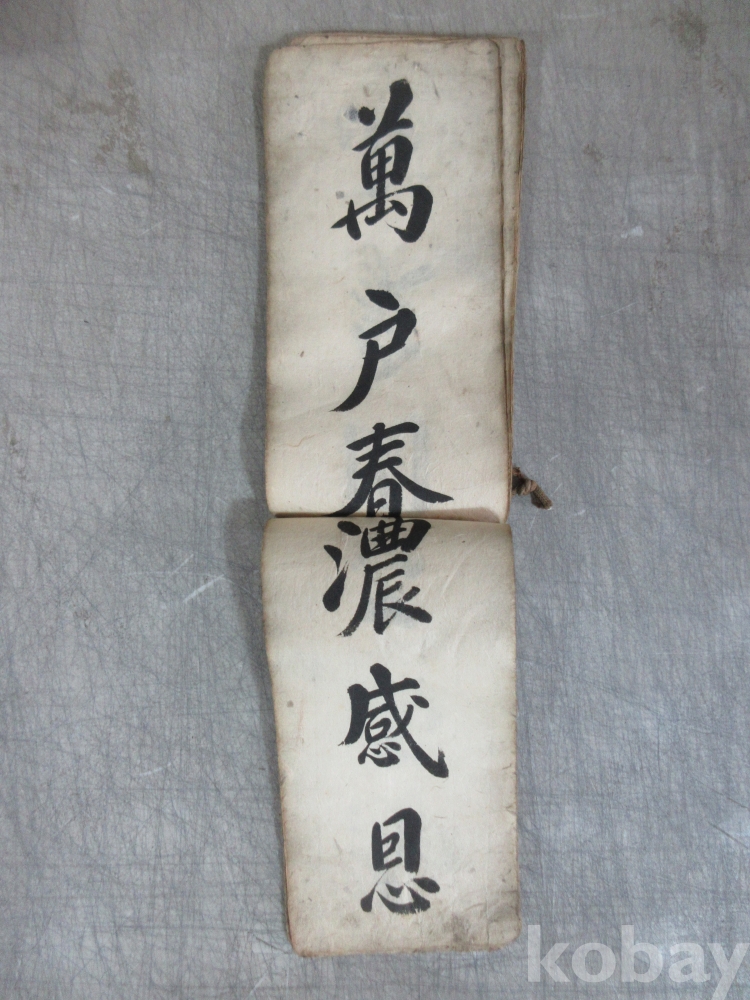 萬戶春濃感恩
kobay